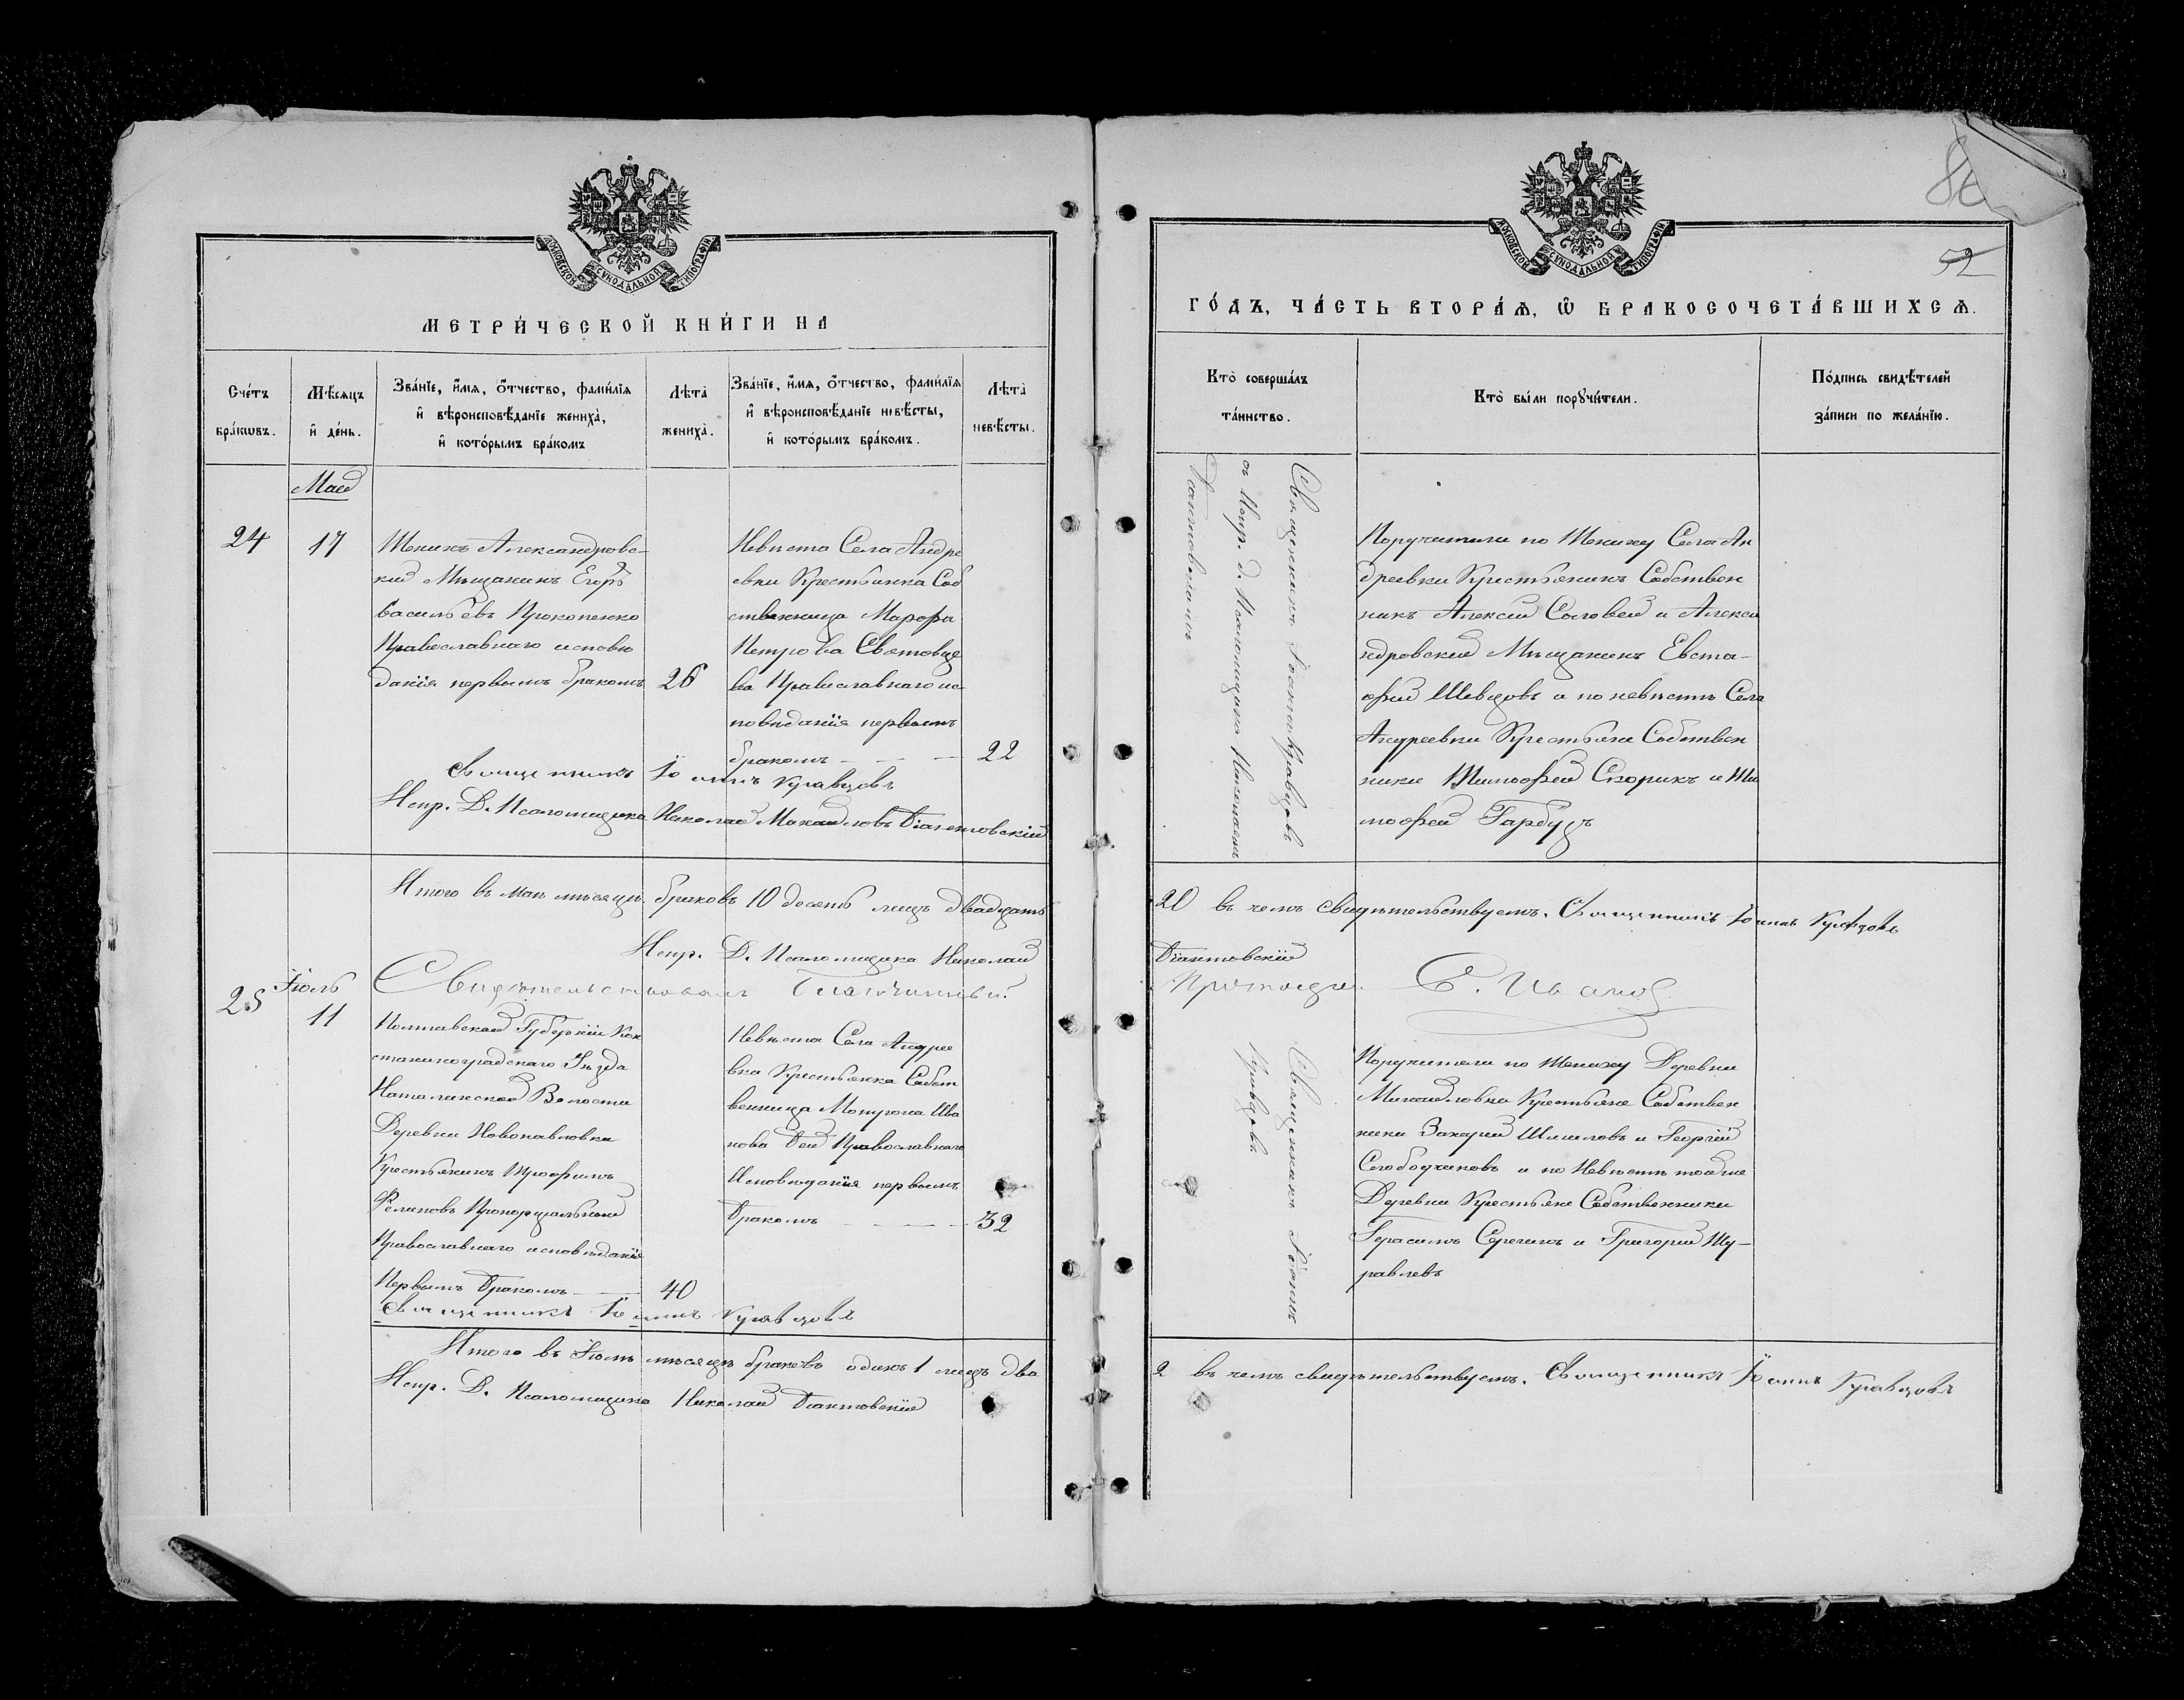 МОСКОВСКОЙ СѴНОДАЛЬНОЙ ТИПОГРАФІИ
МЕТРИ́ЧЕСКОЙ КНИ́ГИ НА
Сче́тъ бра́кωвъ.
Мѣ́сяцъ и҆ де́нь.
Зва́нїе, и҆́мя, ѻ҆́тчество, фами́лїя
и҆ вѣроисповѣ́данїе жениха̀,
и҆ кото́рымъ бра́комъ
Лѣ́та̀ жениха̀.
Зва́нїе, и҆́мя, ѻ҆́тчество, фами́лїя
и҆ вѣроисповѣ́данїе невѣ́сты,
и҆ кото́рымъ бра́комъ.
Лѣ́та̀ невѣ́сты.
Май
24
17
Женихъ Александровс-
кій Мѣщанинъ Егоръ
Васильевъ Прокопенко
Православнаго исповѣ
данія первымъ бракомъ
26
Невѣста Села Андре
евки Крестьянка Соб
ственница Марфа
Петрова Световце
ва Православнаго ис-
повѣданія первымъ
бракомъ - - -
22
Священникъ Іоаннъ Кравцовъ
Испр. Д. Псаломщика Николай Михайловъ Діантовскій
Итого въ маѣ мѣсяцѣ браковъ 10 десять лицъ двадцать
Испр. Д. Псаломщика Николай
Свидѣтельствовалъ Благочинный
25
Іюль
11
Полтавской Губерніи Кон
стантиноградскаго Уѣзда
Наталинской Волости
Деревни Новопавловки
Крестьянинъ Трофимъ
Филиповъ
Православнаго исповѣданія
Первымъ Бракомъ
40
Невѣста Села Андрее
вки Крестьянка Собст
венница Мотрона Ива
нова Дей Православнаго
Исповѣданія первымъ
Бракомъ
32
Священникъ Іоаннъ Кравцовъ
Итого въ Іюлѣ мѣсяцѣ браковъ одинъ 1 лицъ два
Испр. Д. Псаломщика Николай Діантовскій
52
МОСКОВСКОЙ СѴНОДАЛЬНОЙ ТИПОГРАФІИ
ГО́ДЪ, ЧА́СТЬ ВТОРА́Я, Ѡ҆ БРАКОСОЧЕТА́ВШИХСЯ.
Кто̀ соверша́лъ та́инство.
Кто̀ бы́ли порꙋчи́тели.
По́дпись свидѣ́телей за́писи по жела́нїю.
Священникъ Іоаннъ Кравцовъ
съ Испр. д. Псаломщика Николаемъ
Діантовскимъ
Поручители по Жениху Села Ан
дреевки Крестьянинъ Собствен
никъ Алексій Соловей и Алекса
ндровскій Мѣщанинъ Евста-
фій Шевцовъ и по невѣстѣ Села
Андреевки Крестьяне Собствен
ники Тимофей Скорикъ и Ти
мофей Гарбузъ
20 въ чемъ свидѣтельствуемъ. Священникъ Іоаннъ Кравцовъ
Діантовскій
С. Иванов
Священникъ Іоаннъ
Кравцовъ
Поручители по Жениху Деревни
Михайловки Крестьяне Собствен
ники Захарій Шиловъ и Георгій
Слободчиковъ и по Невѣстѣ тойже
Деревни Крестьяне Собственники
Герасимъ Сергинъ и Григорій Жу-
равлевъ
2 въ чемъ свидѣтельствуемъ. Священникъ Іоаннъ Кравцовъ